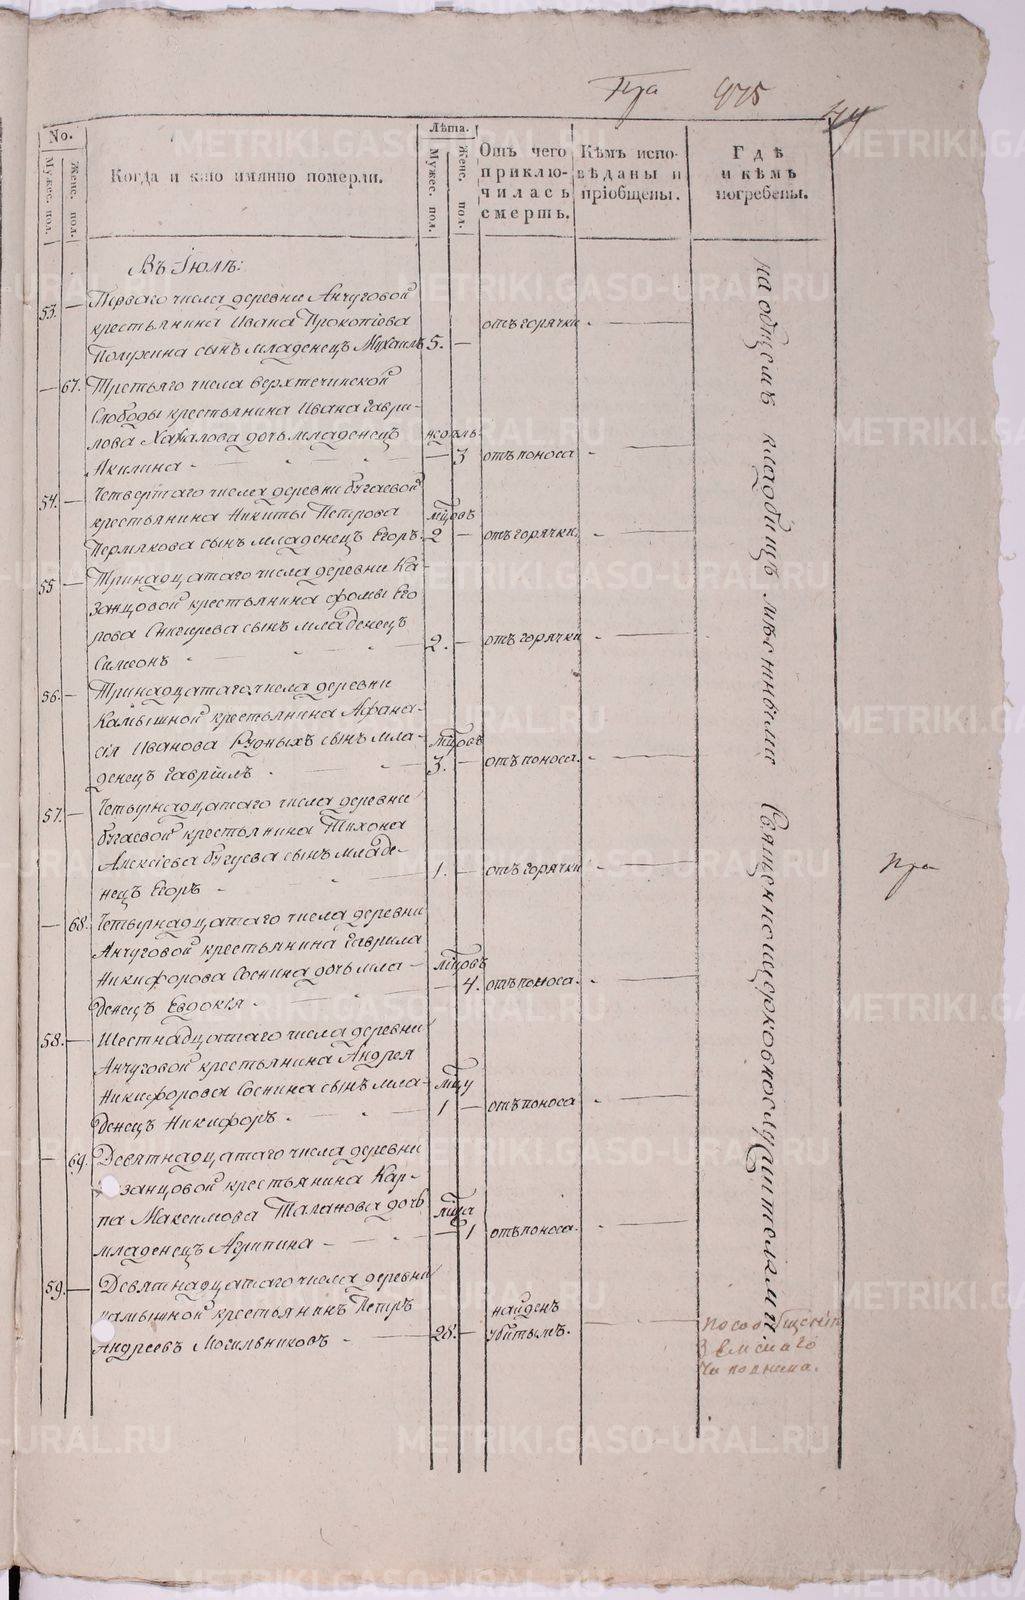 475
No.
Мужес. пол.
Женс. пол.
Когда и кто имянно померли.
Лѣта.
Мужес. пол.
Женс. пол.
Отъ чего приклю-чилась смерть.
Кѣмъ испо-вѣданы и пріобщены.
Гдѣ и кѣмъ погребены.
Въ Іюлѣ:
53. — Перваго числа деревни Анчуговой
крестьянина Ивана Прокопіева
сынъ младенецъ Михаилъ 5. — отъ горячки -
— 67. Третьяго числа верхтечинской
Слободы крестьянина Ивана Гаври-
лова дочь младенецъ недѣль
Акилина - — 3 отъ поноса -
54. — Четвертаго числа деревни бугаевой
крестьянина Никиты Петрова мцовъ
Пермякова сынъ младенецъ Егоръ. 2 — отъ горячки. -
55 — Тринадцатаго числа деревни Ка-
занцовой крестьянина Фомы Его
рова Снигирева сынъ младенецъ
Симеонъ - 2. — отъ горячки -
56. — Тринадцатаго числа деревни
Камышной крестьянина Афана-
сія Иванова Рудныхъ сынъ мла- мцовъ
денецъ Гавріилъ - 3. — отъ поноса. -
57. — Четырнадцатаго числа деревни
бугаевой крестьянина Тихона
Алексіева бугуева сынъ младе-
нецъ Егоръ - 1. — отъ горячки -
— 68. Четырнадцатаго числа деревни
Анчуговой крестьянина Гаврила
Никифорова Соснина дочь мла- мцовъ
денецъ Евдокія - — 4. отъ поноса. -
58. — Шестнадцатаго числа деревни
Анчуговой крестьянина Андрея
Никифорова Соснина сынъ мла- мцу
денецъ Никифоръ - 1 — отъ поноса -
— 69. Девятнадцатаго числа деревни
занцовой крестьянина Кар-
па Максимова Таланова дочь мца
младенецъ Агрипина - — 1 отъ поноса. -
59. — Девятнадцатаго числа деревни
амышной крестьянинъ Петръ найденъ
Андреевъ Могильниковъ - 28. — убитымъ.
на общемъ кладбищѣ мѣстными Священноцерковнослужителями.
по сообщенію
Земскаго
METRIKI.GASO-URAL.RU